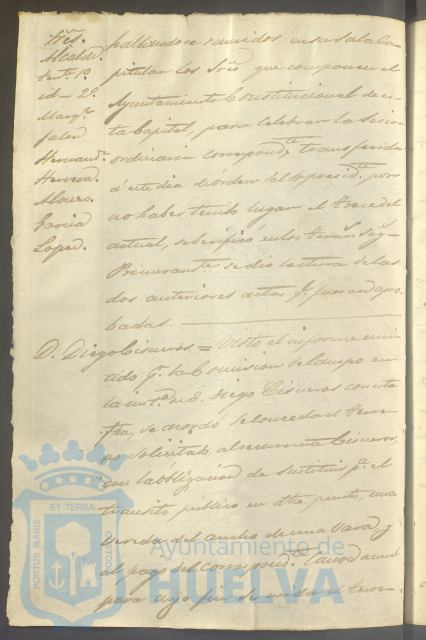 Sres.
Alcalde.
Tente. 1º
id - 2º
Marqz.
Galen
Hernandz.
Herrera.
Alonso.
Garcia
Lopez.
hallandose reunidos en su Sala Ca-
pitular los Sres. que componen el
Ayuntamiento Constitucional de es-
ta Capital, para celebrar la sesion
ordinaria correspondte. transferida
á este dia de órden del Sr. presidte. por
no haber tenido lugar el trece del
actual, se verificó en los term.s sig.s
Primeramte. se dió lectura de las
dos anteriores actas q. fueron apro-
badas.
D. Diego Cisneros. = Visto el informe emi-
tido pr. la Comision de Campo en
la inst.a de D. Diego Cisneros con esta
fha, se acordó se conceda el terre-
no solicitado, al recurrente Cisneros,
con la obligacion de sustituir pa. el
transito público en dho punto, una
Vereda del ancho de una Vara y
el pago del correspond.te
para cuyo fin se mida el terre-
PORTUS MARIS
ET TERRÆ
CUSTODIA
Ayuntamiento de
HUELVA